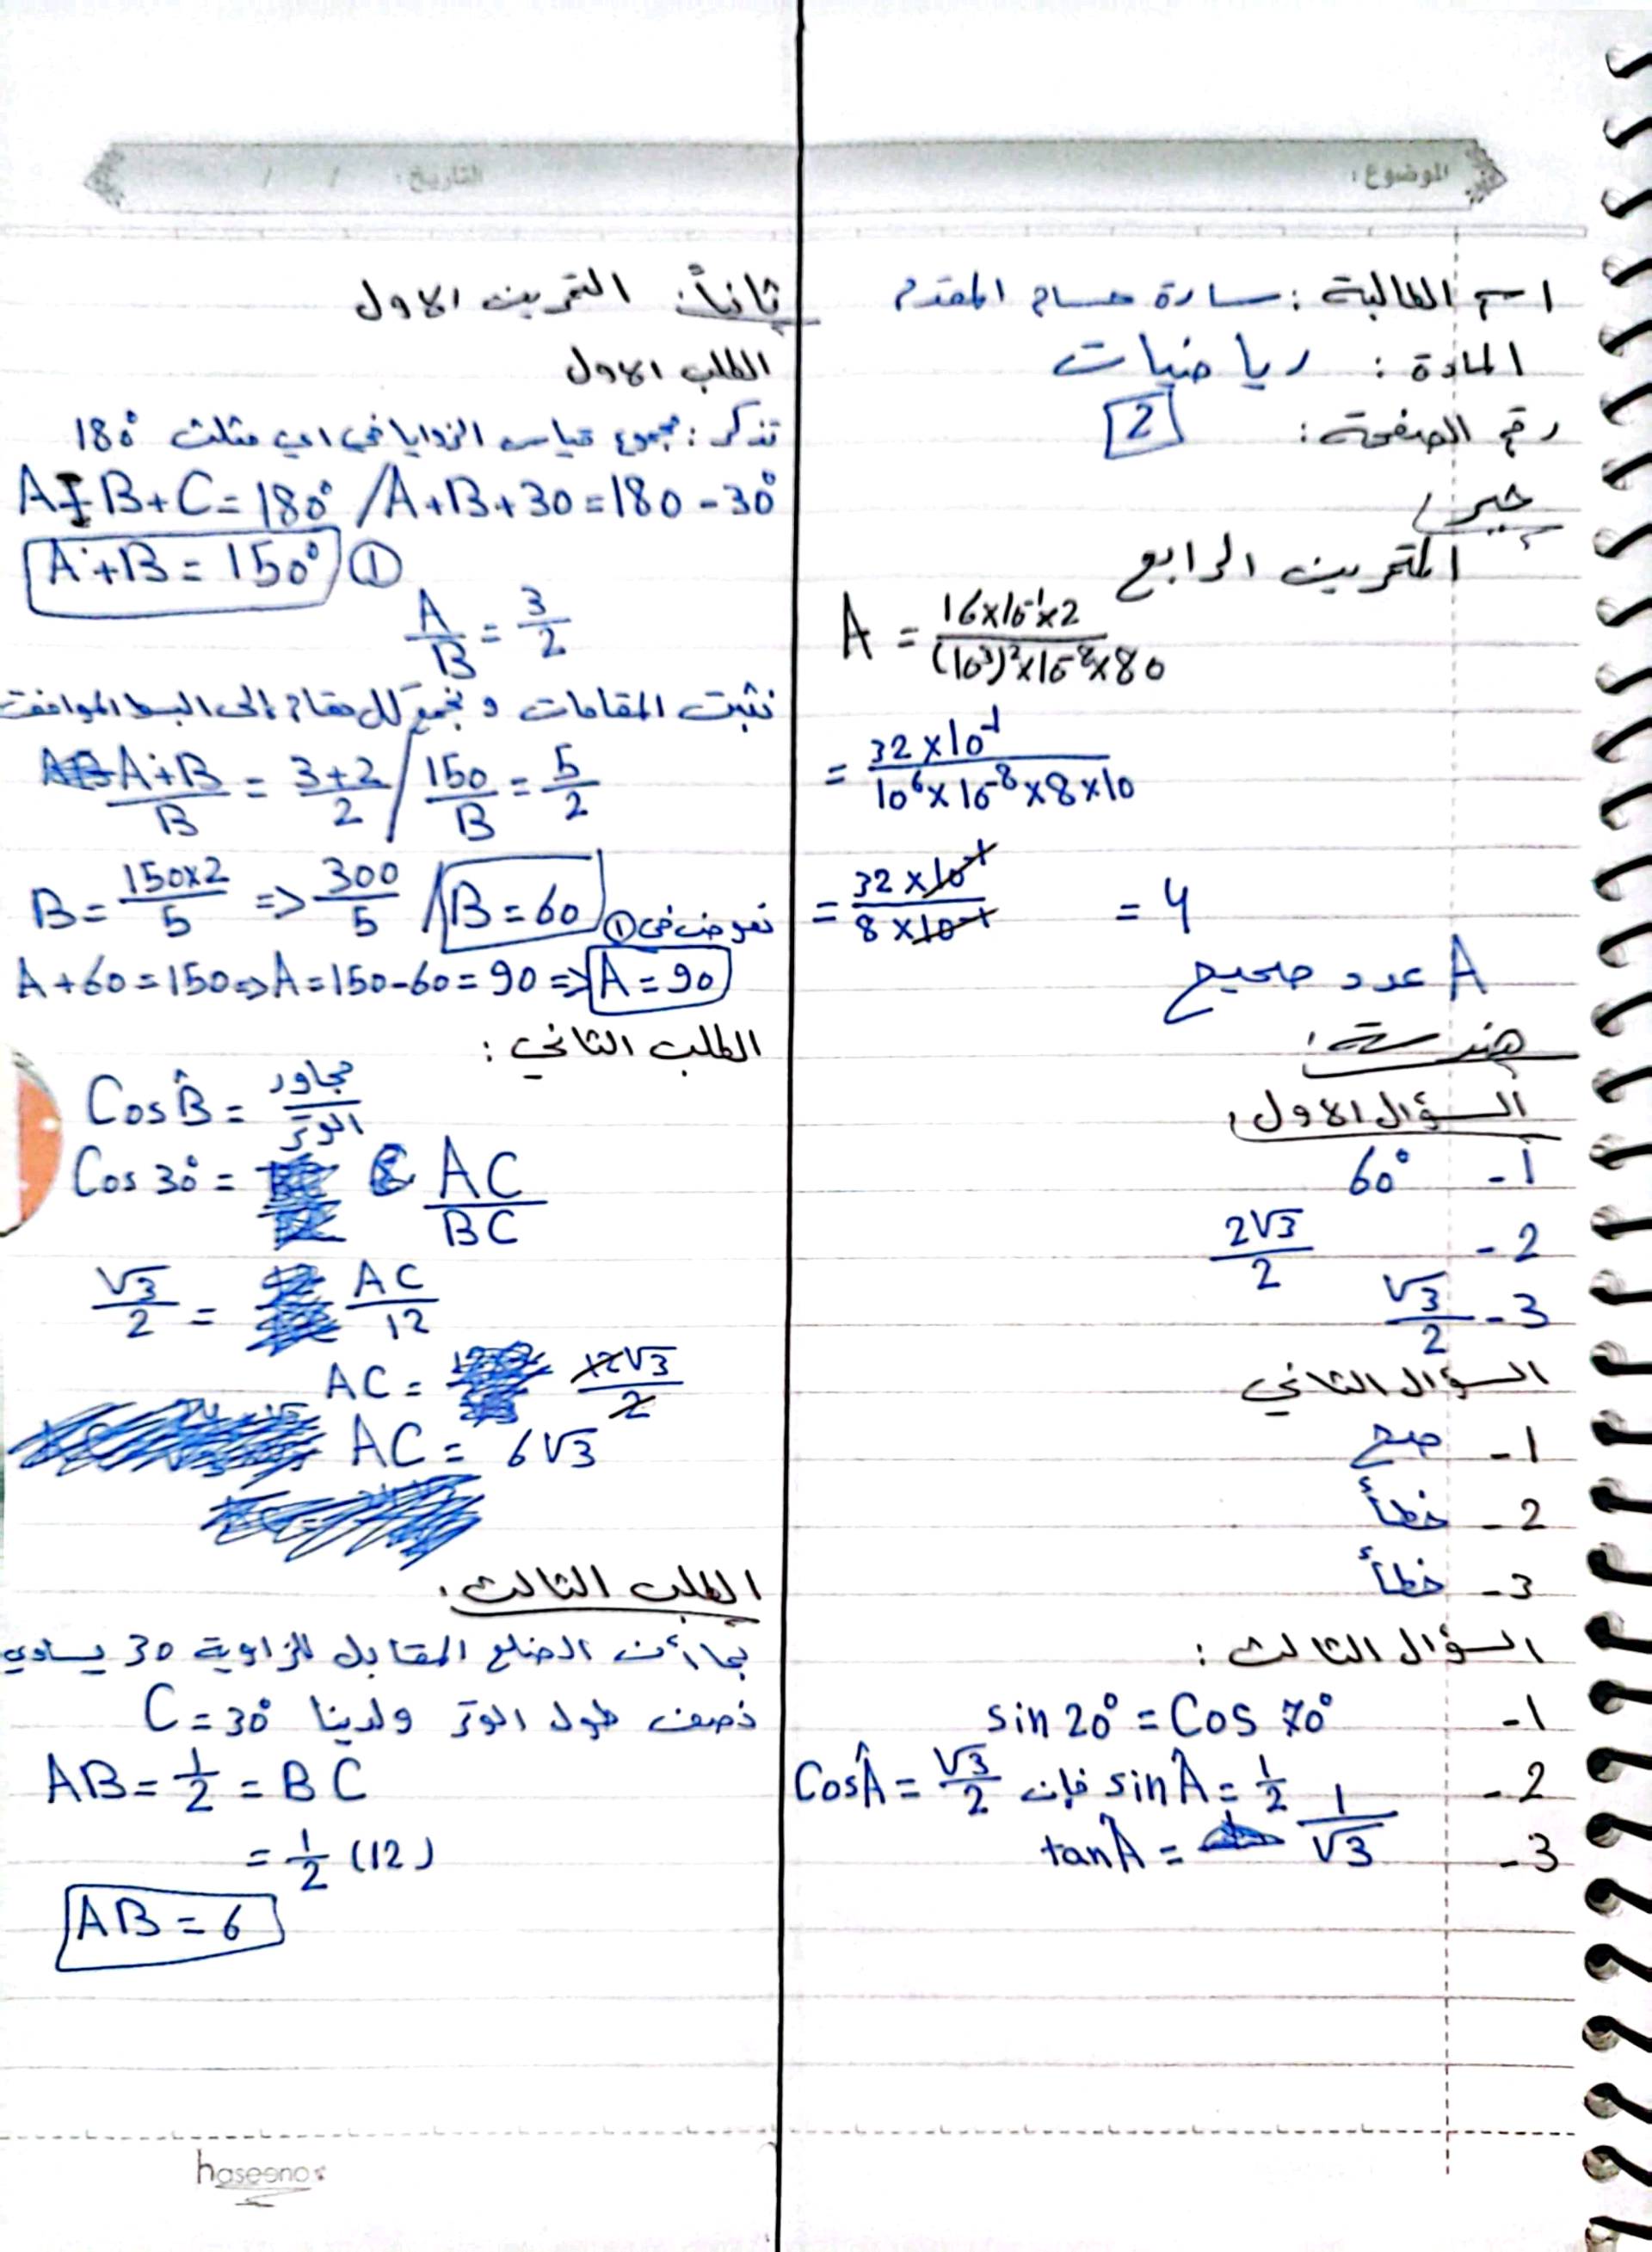 الموضوع:
التاريخ: / /
اسم الطالبة: سارة حسام المقدم
المادة: رياضيات
رقم الصفحة: 2
جبر
التمرين الرابع
A = \frac{16×10^{-1}×2}{(10^3)^2×10^{-8}×80}
= \frac{32×10^{-1}}{10^6×10^{-8}×8×10}
= \frac{32×10^{-1}}{8×10^{-1}} = 4
A عدد صحيح
هندسة:
السؤال الاول:
1- 60°
2- \frac{2√3}{2}
3- \frac{√3}{2}
السؤال الثاني
1- صح
2- خطأ
3- خطأ
السؤال الثالث:
1- sin 20° = Cos 70°
2- sin Â = \frac{1}{2} فإن Cos Â = \frac{√3}{2}
3- tan Â = \frac{1}{√3}
ثانياً: التمرين الاول
الطلب الاول
تذكر: مجموع قياس الزوايا في اي مثلث 180°
A+B+C=180° / A+B+30=180-30°
A+B=150° ①
\frac{A}{B} = \frac{3}{2}
نثبت المقامات و نجمع كل مقام إلى البسط الموافق
\frac{A+B}{B} = \frac{3+2}{2} / \frac{150}{B} = \frac{5}{2}
B = \frac{150×2}{5} => \frac{300}{5} / B=60 نعوض في ①
A+60=150 => A=150-60=90 => A=90
الطلب الثاني:
Cos B̂ = \frac{مجاور}{الوتر}
Cos 30° = \frac{AC}{BC}
\frac{√3}{2} = \frac{AC}{12}
AC = \frac{12√3}{2}
AC = 6√3
الطلب الثالث:
بما أن الضلع المقابل للزاوية 30 يساوي
نصف طول الوتر ولدينا C=30°
AB = \frac{1}{2} = BC
= \frac{1}{2} (12)
AB = 6
haseeno